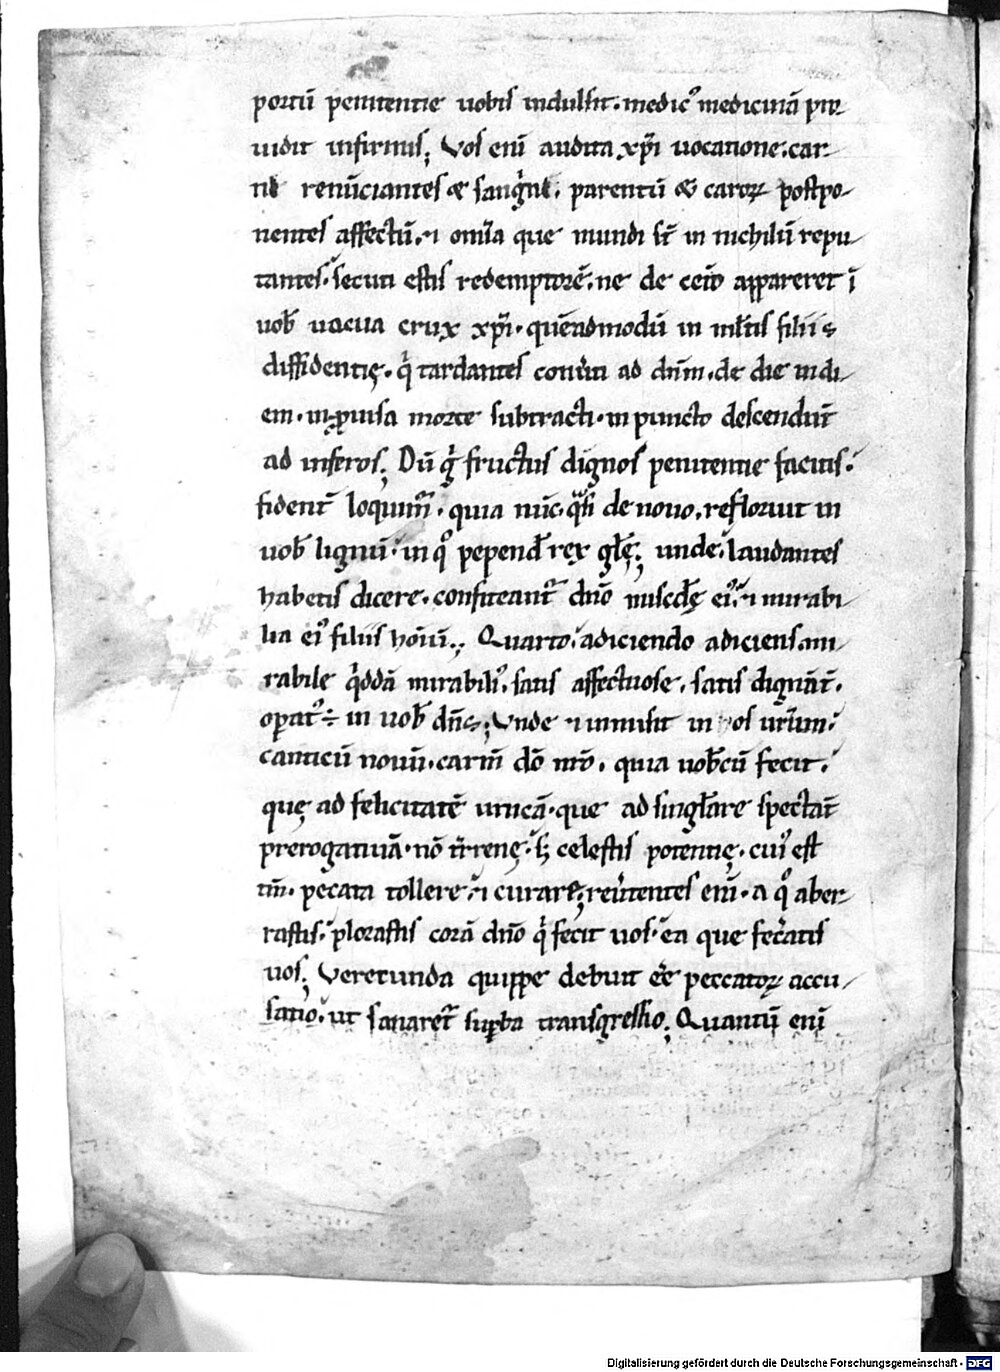 portū penitentie uobis indulsit. medicꝰ medicinā pro-
uidit infirmis; Vos enī audita xp̄i uocatione. car-
ni renūciantes & sanguini. parentū & caroꝝ postpo-
nentes affectū. ⁊ omīa que mundi st̄ in nichilū repu-
tantes. secuti estis redemptorē. ne de cet̄o appareret ī
uob̄ uacua crux xp̄i. quēadmodū in ml̄tis filiis
diffidentię. qͥ tardantes conūti ad dn̄m. de die in di-
em. inꝓuisa morte subtracti. in puncto descendūt
ad inferos; Dū gͦ fructus dignos penitentie facitis.
fident̄ loquimr̄. quia nūc qͣsi de nouo. refloruit in
uob̄ lignū. in qͦ pepend̄ rex gl̄ę; unde. laudantes
habetis dicere. confiteantr̄ dn̄o misc̄dię eiꝰ. ⁊ mirabi-
lia eiꝰ filiis hoīum; Quarto. adiciendo adiciens. mi-
rabile qͦddā mirabiliꝰ. satis affectuose. satis dignāt̄.
opatꝰ ÷ in uob̄ dn̄s; Vnde ⁊ inmisit in os ur̄um.
canticū nouū. carm̄ dō nr̄o. quia uob̄cū fecit.
quę ad felicitatē unicā. que ad singl̄are spectāt
prerogatiuā. nō t̄renę. sꝫ celestis potentię. cuiꝰ est
tm̄. peccata tollere. ⁊ curare; reūtentes enī. a qͦ aber-
rastis. plorastis corā dn̄o qͥ fecit uos. ea que fec̄atis
uos; Verecunda quippe debuit eē peccatoꝝ accu-
satio. ut sanaretr̄ supba transgressio. Quantū enī
Digitalisierung gefördert durch die Deutsche Forschungsgemeinschaft - DFG